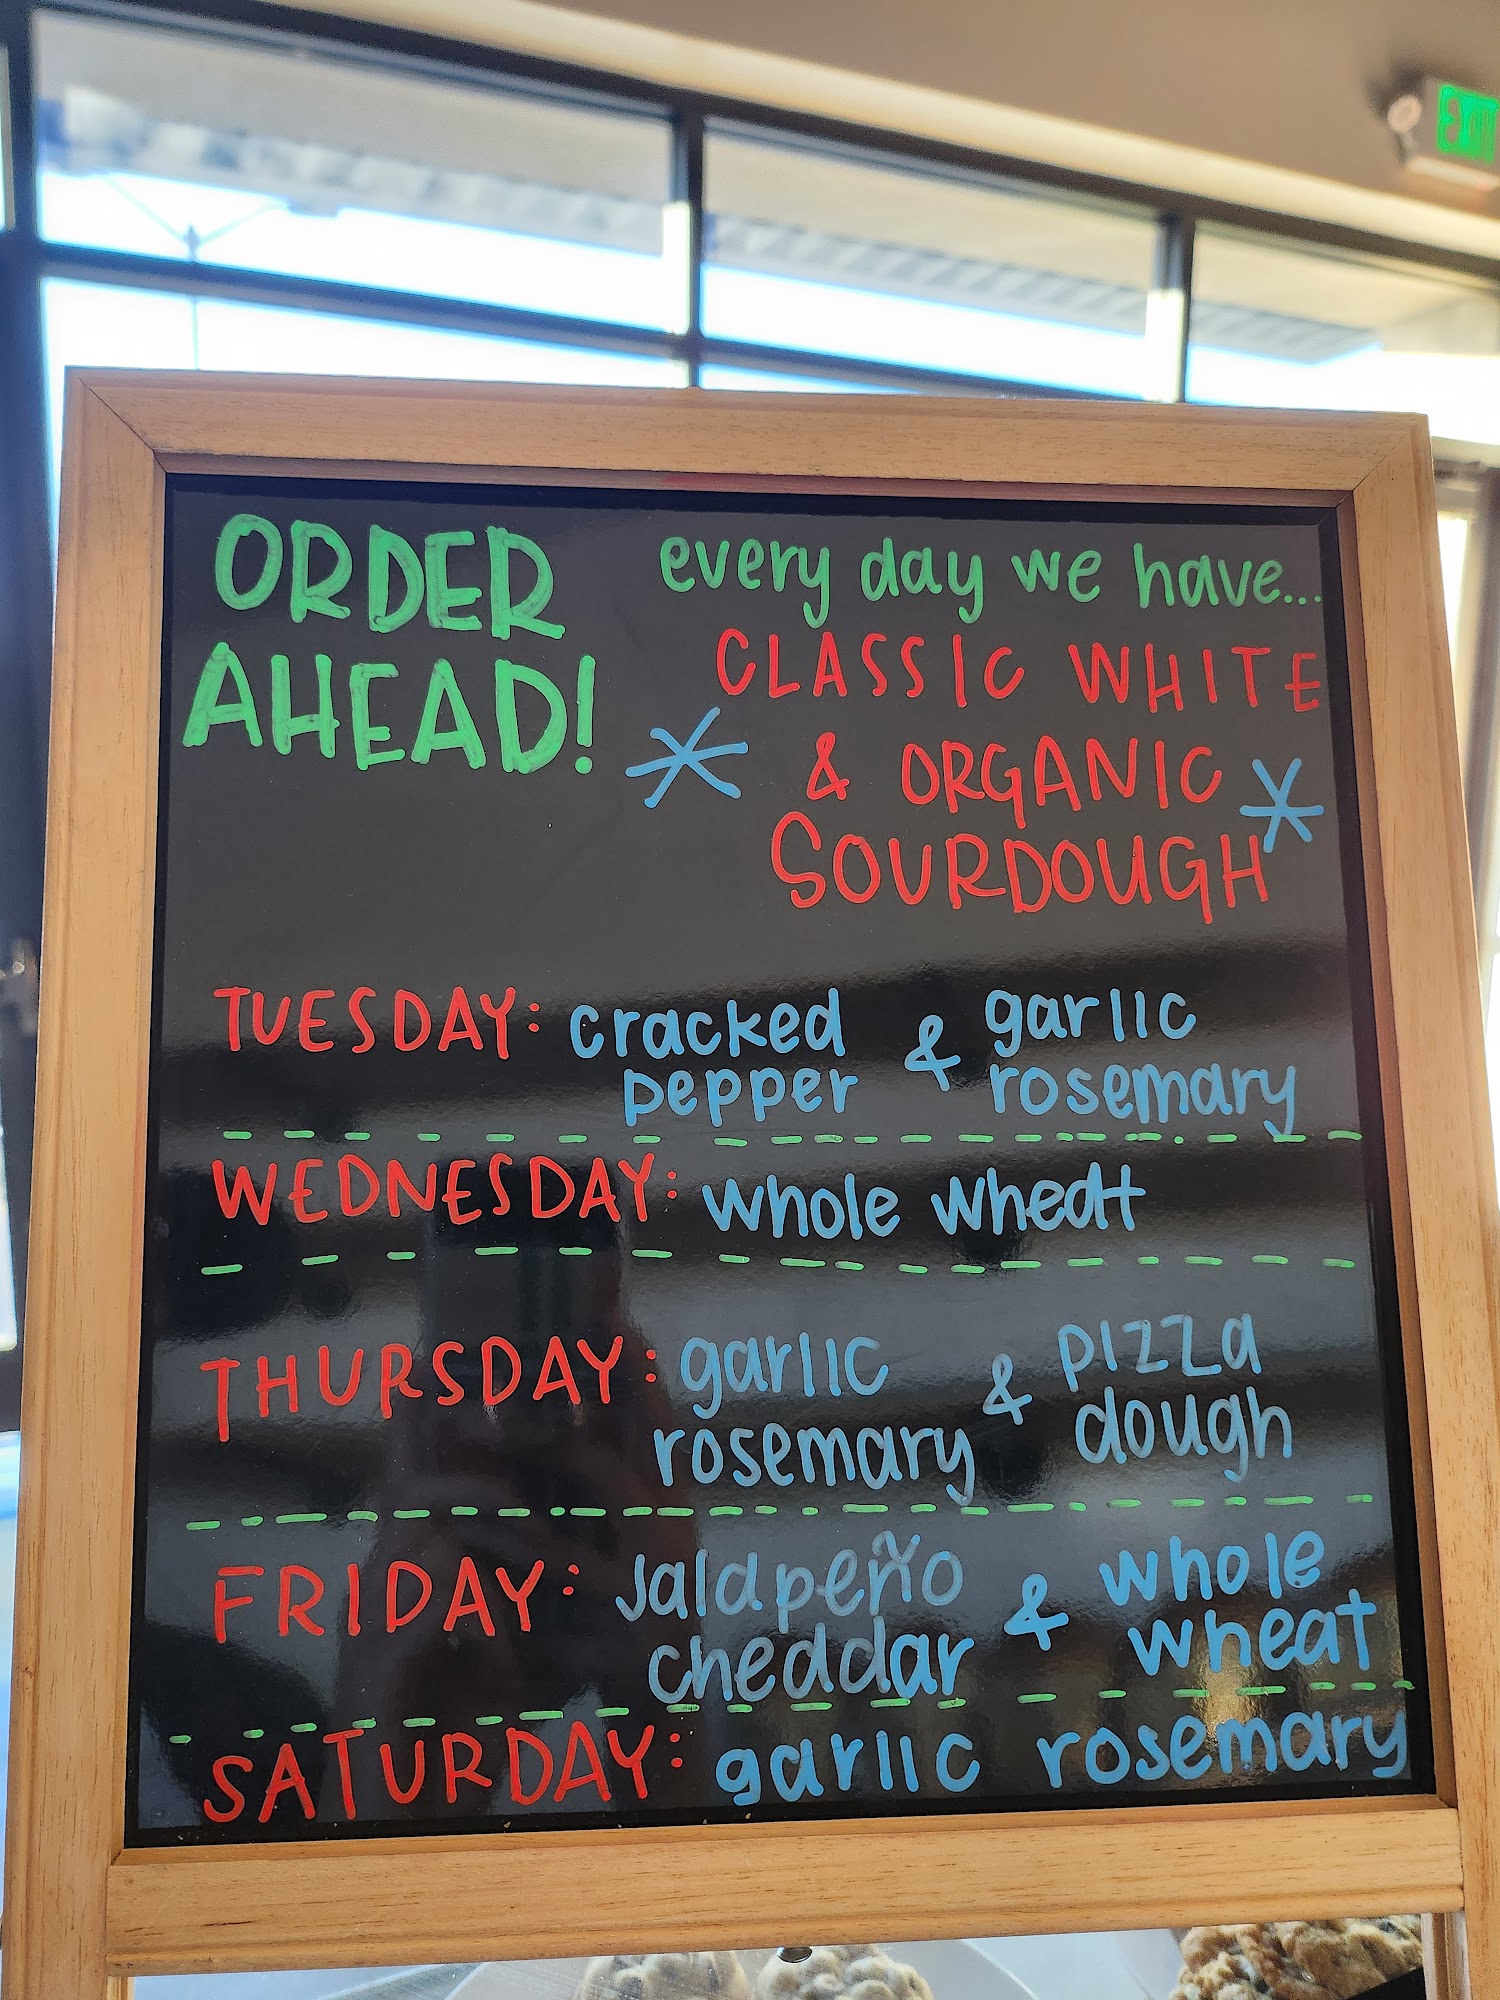 EXIT
ORDER
AHEAD!
every day we have...
CLASSIC WHITE
& ORGANIC
SOURDOUGH
TUESDAY: cracked & garlic
pepper rosemary
WEDNESDAY: whole wheat
THURSDAY: garlic & pizza
rosemary dough
FRIDAY: Jalapeño & whole
cheddar wheat
SATURDAY: garlic rosemary